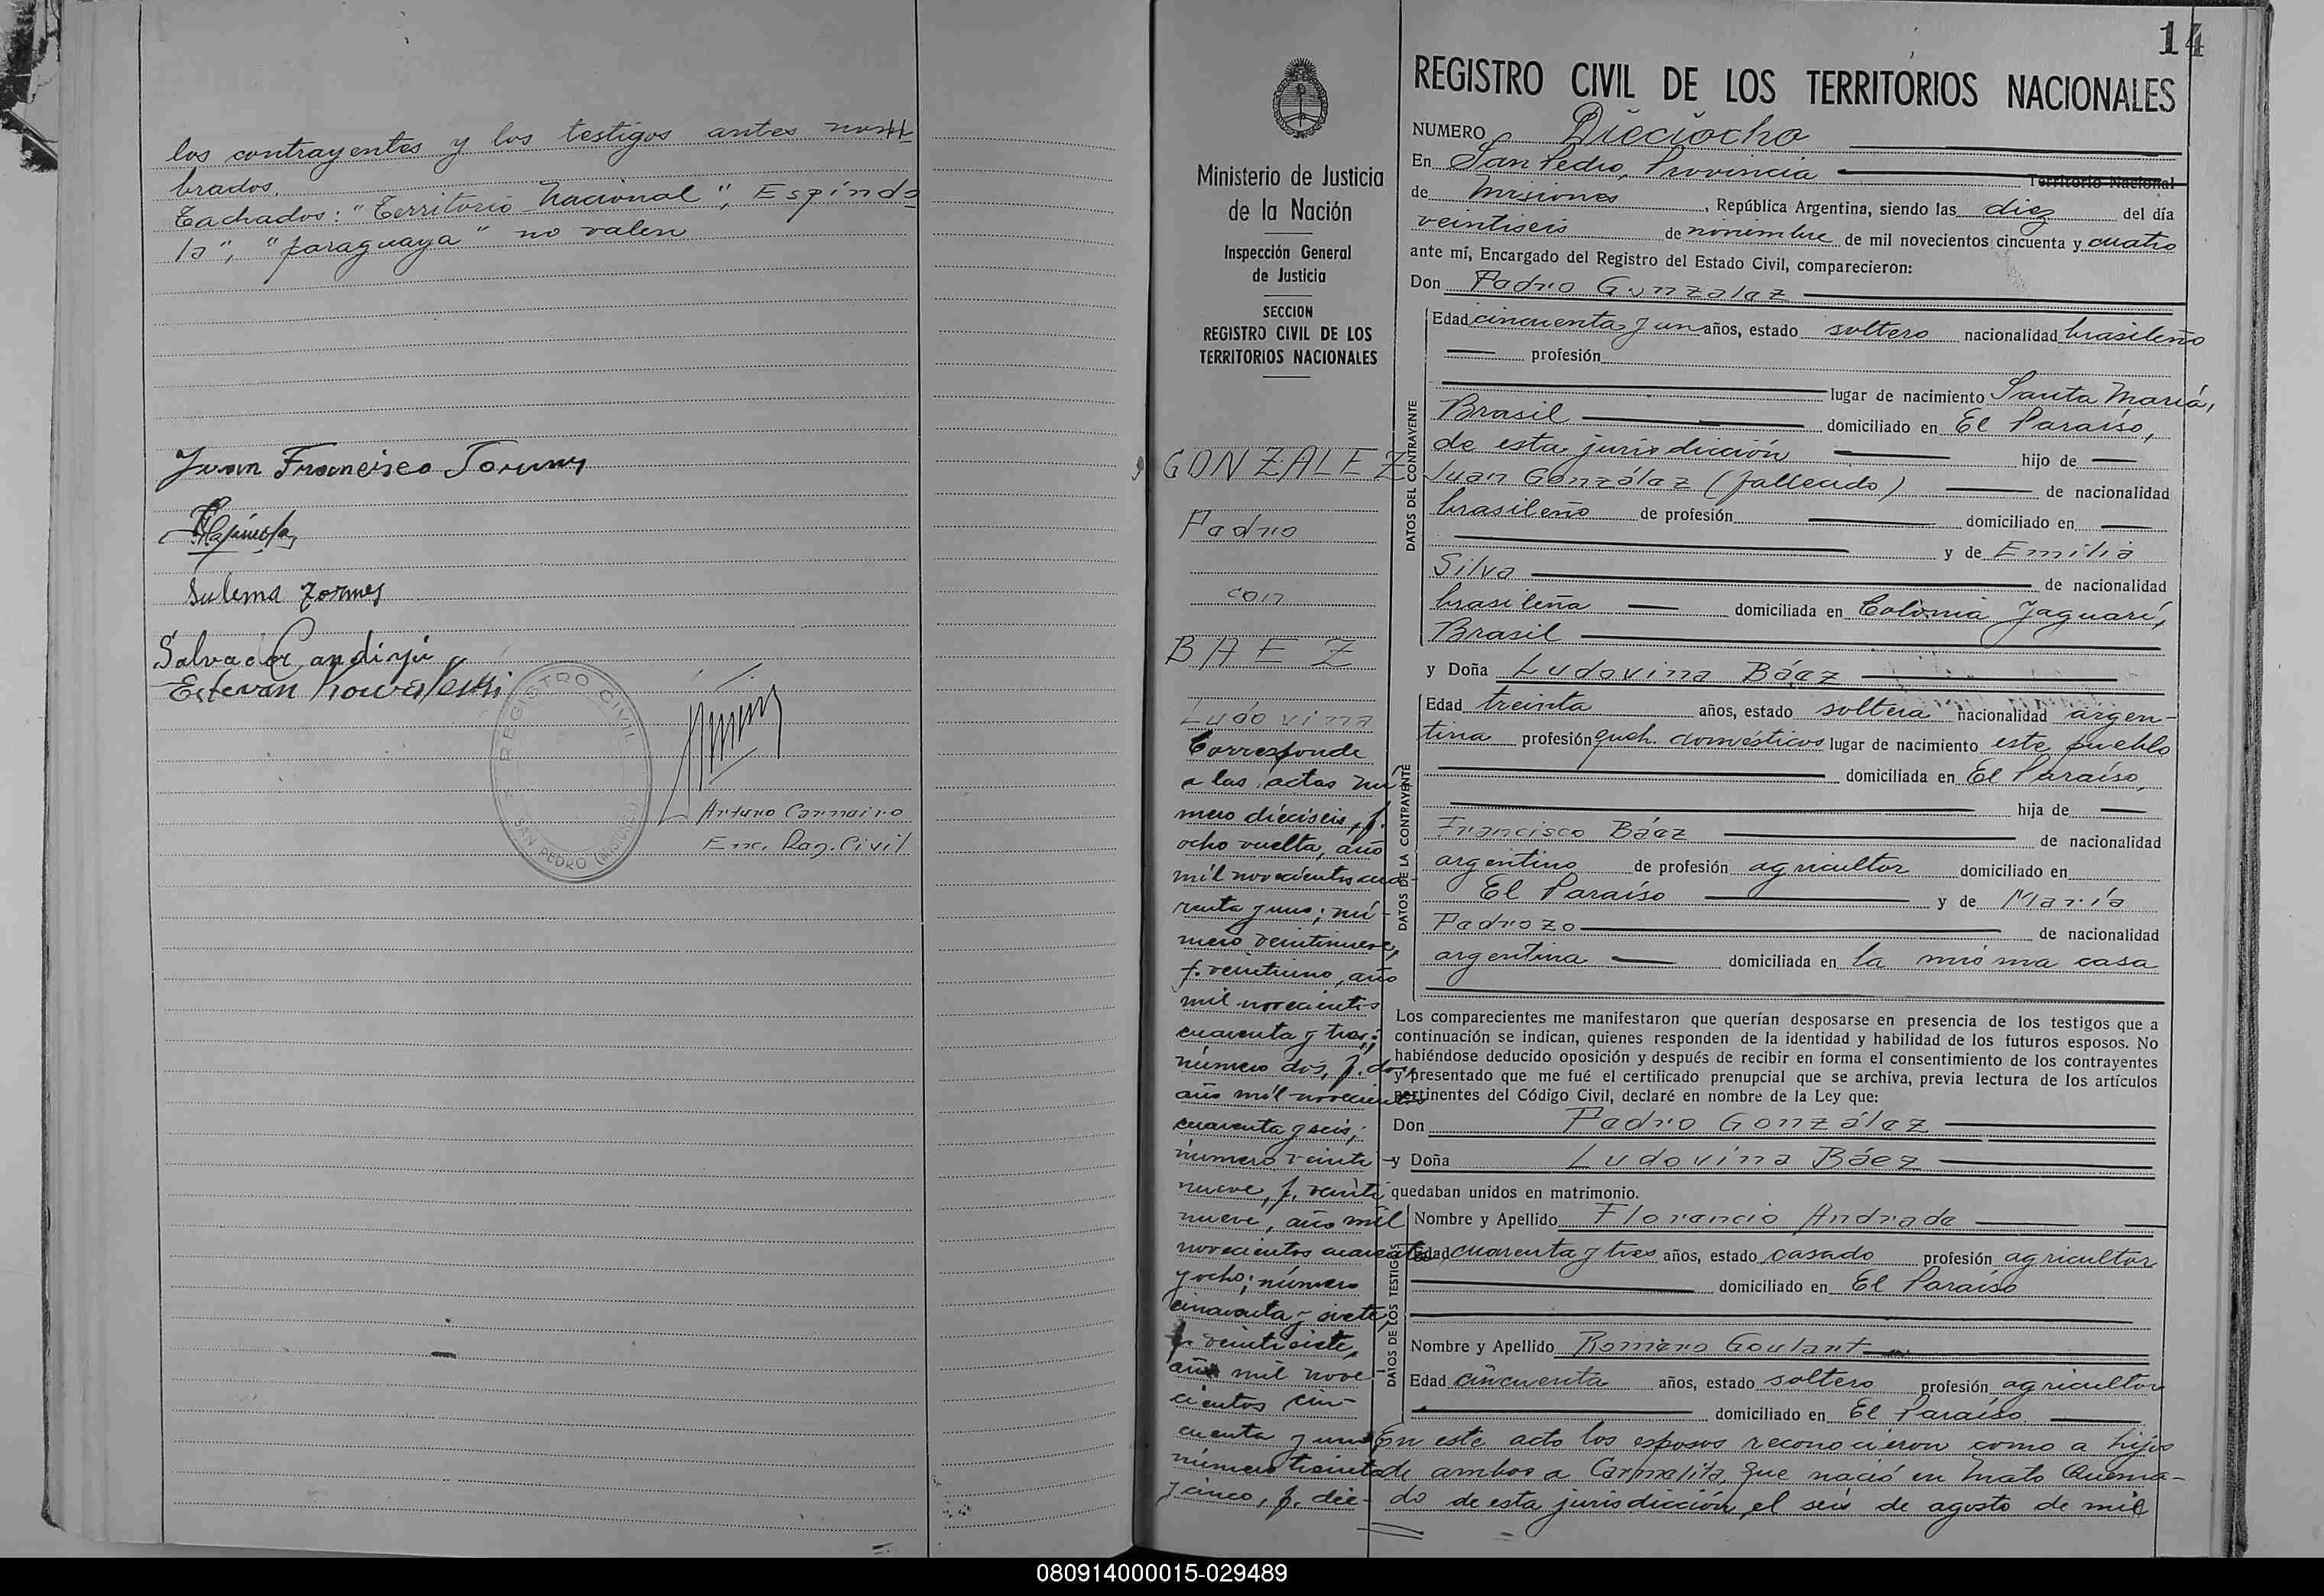 los contrayentes y los testigos antes nom
brados.
Tachados: "Territorio Nacional", Espíndo
la", "paraguaya" no valen
Juan Francisco
Sulema
Salvador Candiyú
Estevan
REGISTRO CIVIL
SAN PEDRO (MISIONES)
Arturo Carneiro
Enc. Reg. Civil
14
Ministerio de Justicia
de la Nación
Inspección General
de Justicia
SECCION
REGISTRO CIVIL DE LOS
TERRITORIOS NACIONALES
GONZALEZ
Pedro
con
BAEZ
Ludovina
Corresponde
a las actas nú
mero dieciseis, f.
ocho vuelta, año
mil novecientos cua-
renta y uno; nú-
mero veintinueve,
f. veintiuno, año
mil novecientos
cuarenta y tres;
número dos, f. dos,
año mil novecientos
cuarenta y seis;
número veinti-
nueve, f. veinti
nueve, año mil
novecientos cuarenta
y ocho; número
cincuenta y siete,
f. veintisiete,
año mil nove
cientos cin-
cuenta y uno
número treinta
y cinco, f. die-
REGISTRO CIVIL DE LOS TERRITORIOS NACIONALES
NUMERO Dieciocho
En San Pedro, Provincia Territorio Nacional
de Misiones, República Argentina, siendo las diez del día
veintiseis de noviembre de mil novecientos cincuenta y cuatro
ante mí, Encargado del Registro del Estado Civil, comparecieron:
Don Pedro Gonzalez
DATOS DEL CONTRAYENTE
Edad cincuenta y un años, estado soltero nacionalidad brasileño
profesión
lugar de nacimiento Santa María,
Brasil domiciliado en El Paraíso,
de esta jurisdicción hijo de
Juan González (fallecido) de nacionalidad
brasileño de profesión domiciliado en
y de Emilia
Silva de nacionalidad
brasileña domiciliada en Colonia Jaguarí,
Brasil
y Doña Ludovina Báez
DATOS DE LA CONTRAYENTE
Edad treinta años, estado soltera nacionalidad argen-
tina profesión queh. domésticos lugar de nacimiento este pueblo
domiciliada en El Paraíso,
hija de
Francisco Báez de nacionalidad
argentino de profesión agricultor domiciliado en
El Paraíso y de María
Pedrozo de nacionalidad
argentina domiciliada en la misma casa
Los comparecientes me manifestaron que querían desposarse en presencia de los testigos que a
continuación se indican, quienes responden de la identidad y habilidad de los futuros esposos. No
habiéndose deducido oposición y después de recibir en forma el consentimiento de los contrayentes
y presentado que me fué el certificado prenupcial que se archiva, previa lectura de los artículos
pertinentes del Código Civil, declaré en nombre de la Ley que:
Don Pedro González
y Doña Ludovina Báez
quedaban unidos en matrimonio.
DATOS DE LOS TESTIGOS
Nombre y Apellido Florencio Andrade
Edad cuarenta y tres años, estado casado profesión agricultor
domiciliado en El Paraíso
Nombre y Apellido Romero Goulart
Edad cincuenta años, estado soltero profesión agricultor
domiciliado en El Paraíso
En este acto los esposos reconocieron como a hijos
de ambos a Carmelita, que nació en Mato Quema-
do de esta jurisdicción, el seis de agosto de mil
080914000015-029489